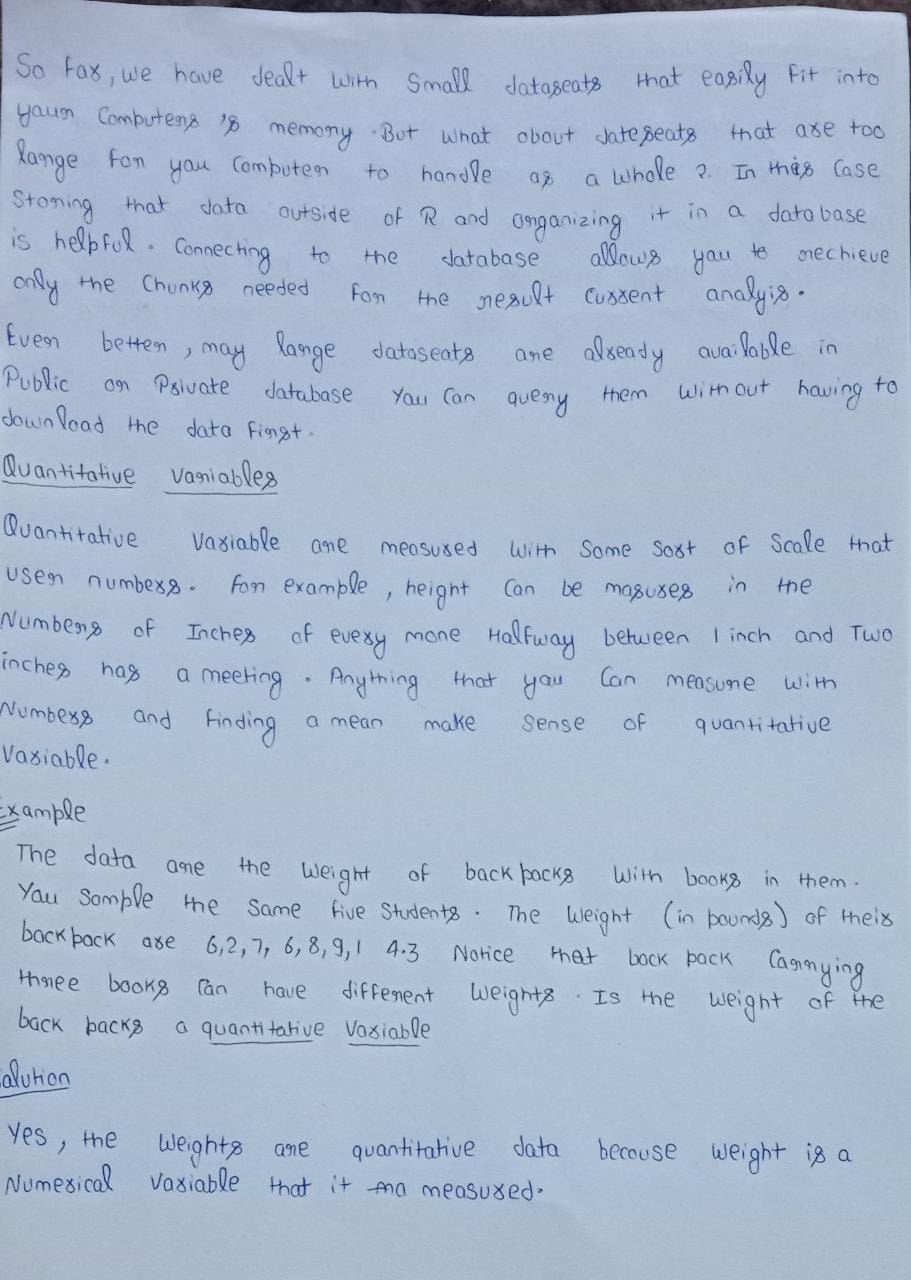 So far, we have dealt with small dataseats that easily fit into
youn Computens 's memory. But what obout dateseats that are too
lange fon you Computen to handle as a whole ? In this Case
Stoning that data outside of R and onganizing it in a database
is helpful. Connecting to the database allows you to nechieve
only the Chunks needed fon the nesult Current analyis.
Even betten, may lange dataseats ane already available in
Public on Private database You Can queny them without having to
download the data finst.
Quantitative vaniables
Quantitative Variable ane measured with Some Sort of Scale that
usen numbers. fon example, height Can be masures in the
Numbens of Inches of every mone Halfway between 1 inch and Two
inches has a meeting. Anything that you Can measune with
Numbers and finding a mean make Sense of quantitative
Variable.
Example
The data ane the weight of back packs with books in them.
You Somple the Same five Students. The Weight (in pounds) of their
back pack are 6,2,7, 6,8,9,1 4.3 Notice that back pack Cannying
thnee books Can have diffenent Weights. Is the weight of the
back packs a quantitative Variable
olution
Yes, the Weights ane quantitative data becouse weight is a
Numerical Variable that it ma measured.